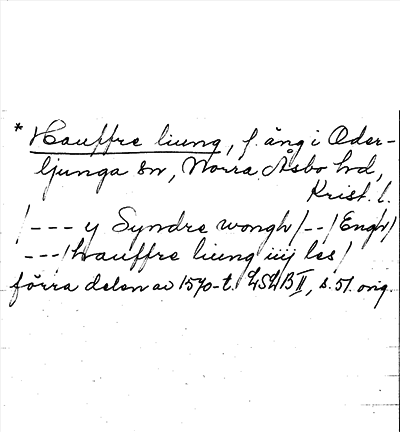 * Hauffre liung, f. äng i Oder-
ljunga sn, Norra Åsbo hd,
Krist. l.
/--- y Syndre wongh/--/Engh/
---/hauffre liung iiij les/
förra delen av 1570-t. LSLB II, s. 51. orig.